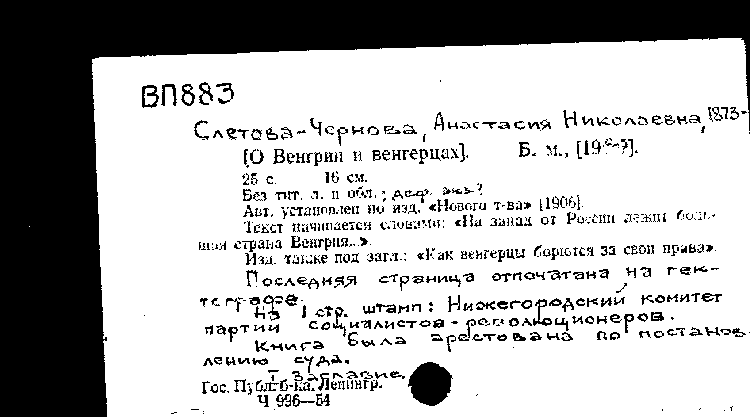 ВП883
Слетова-Чернова, Анастасия Николаевна, 1873-
[О Венгрии и венгерцах]. Б. м., [19
25 с. 16 см.
Без тит. л. и обл.; деф.
Авт. установлен по изд. «Нового т-ва» [1906].
Текст начинается словами: «На запад от России лежит боль-
шая страна Венгрия...».
Изд. также под загл.: «Как венгерцы борются за свои права».
Последняя страница отпечатана на гек-
тографе.
На 1 стр. штамп: Нижегородский комитет
партии социалистов-революционеров.
Книга была арестована по постанов-
лению суда.
I. Заглавие.
Гос. Публ. б-ка. Ленингр.
Ч 996—54